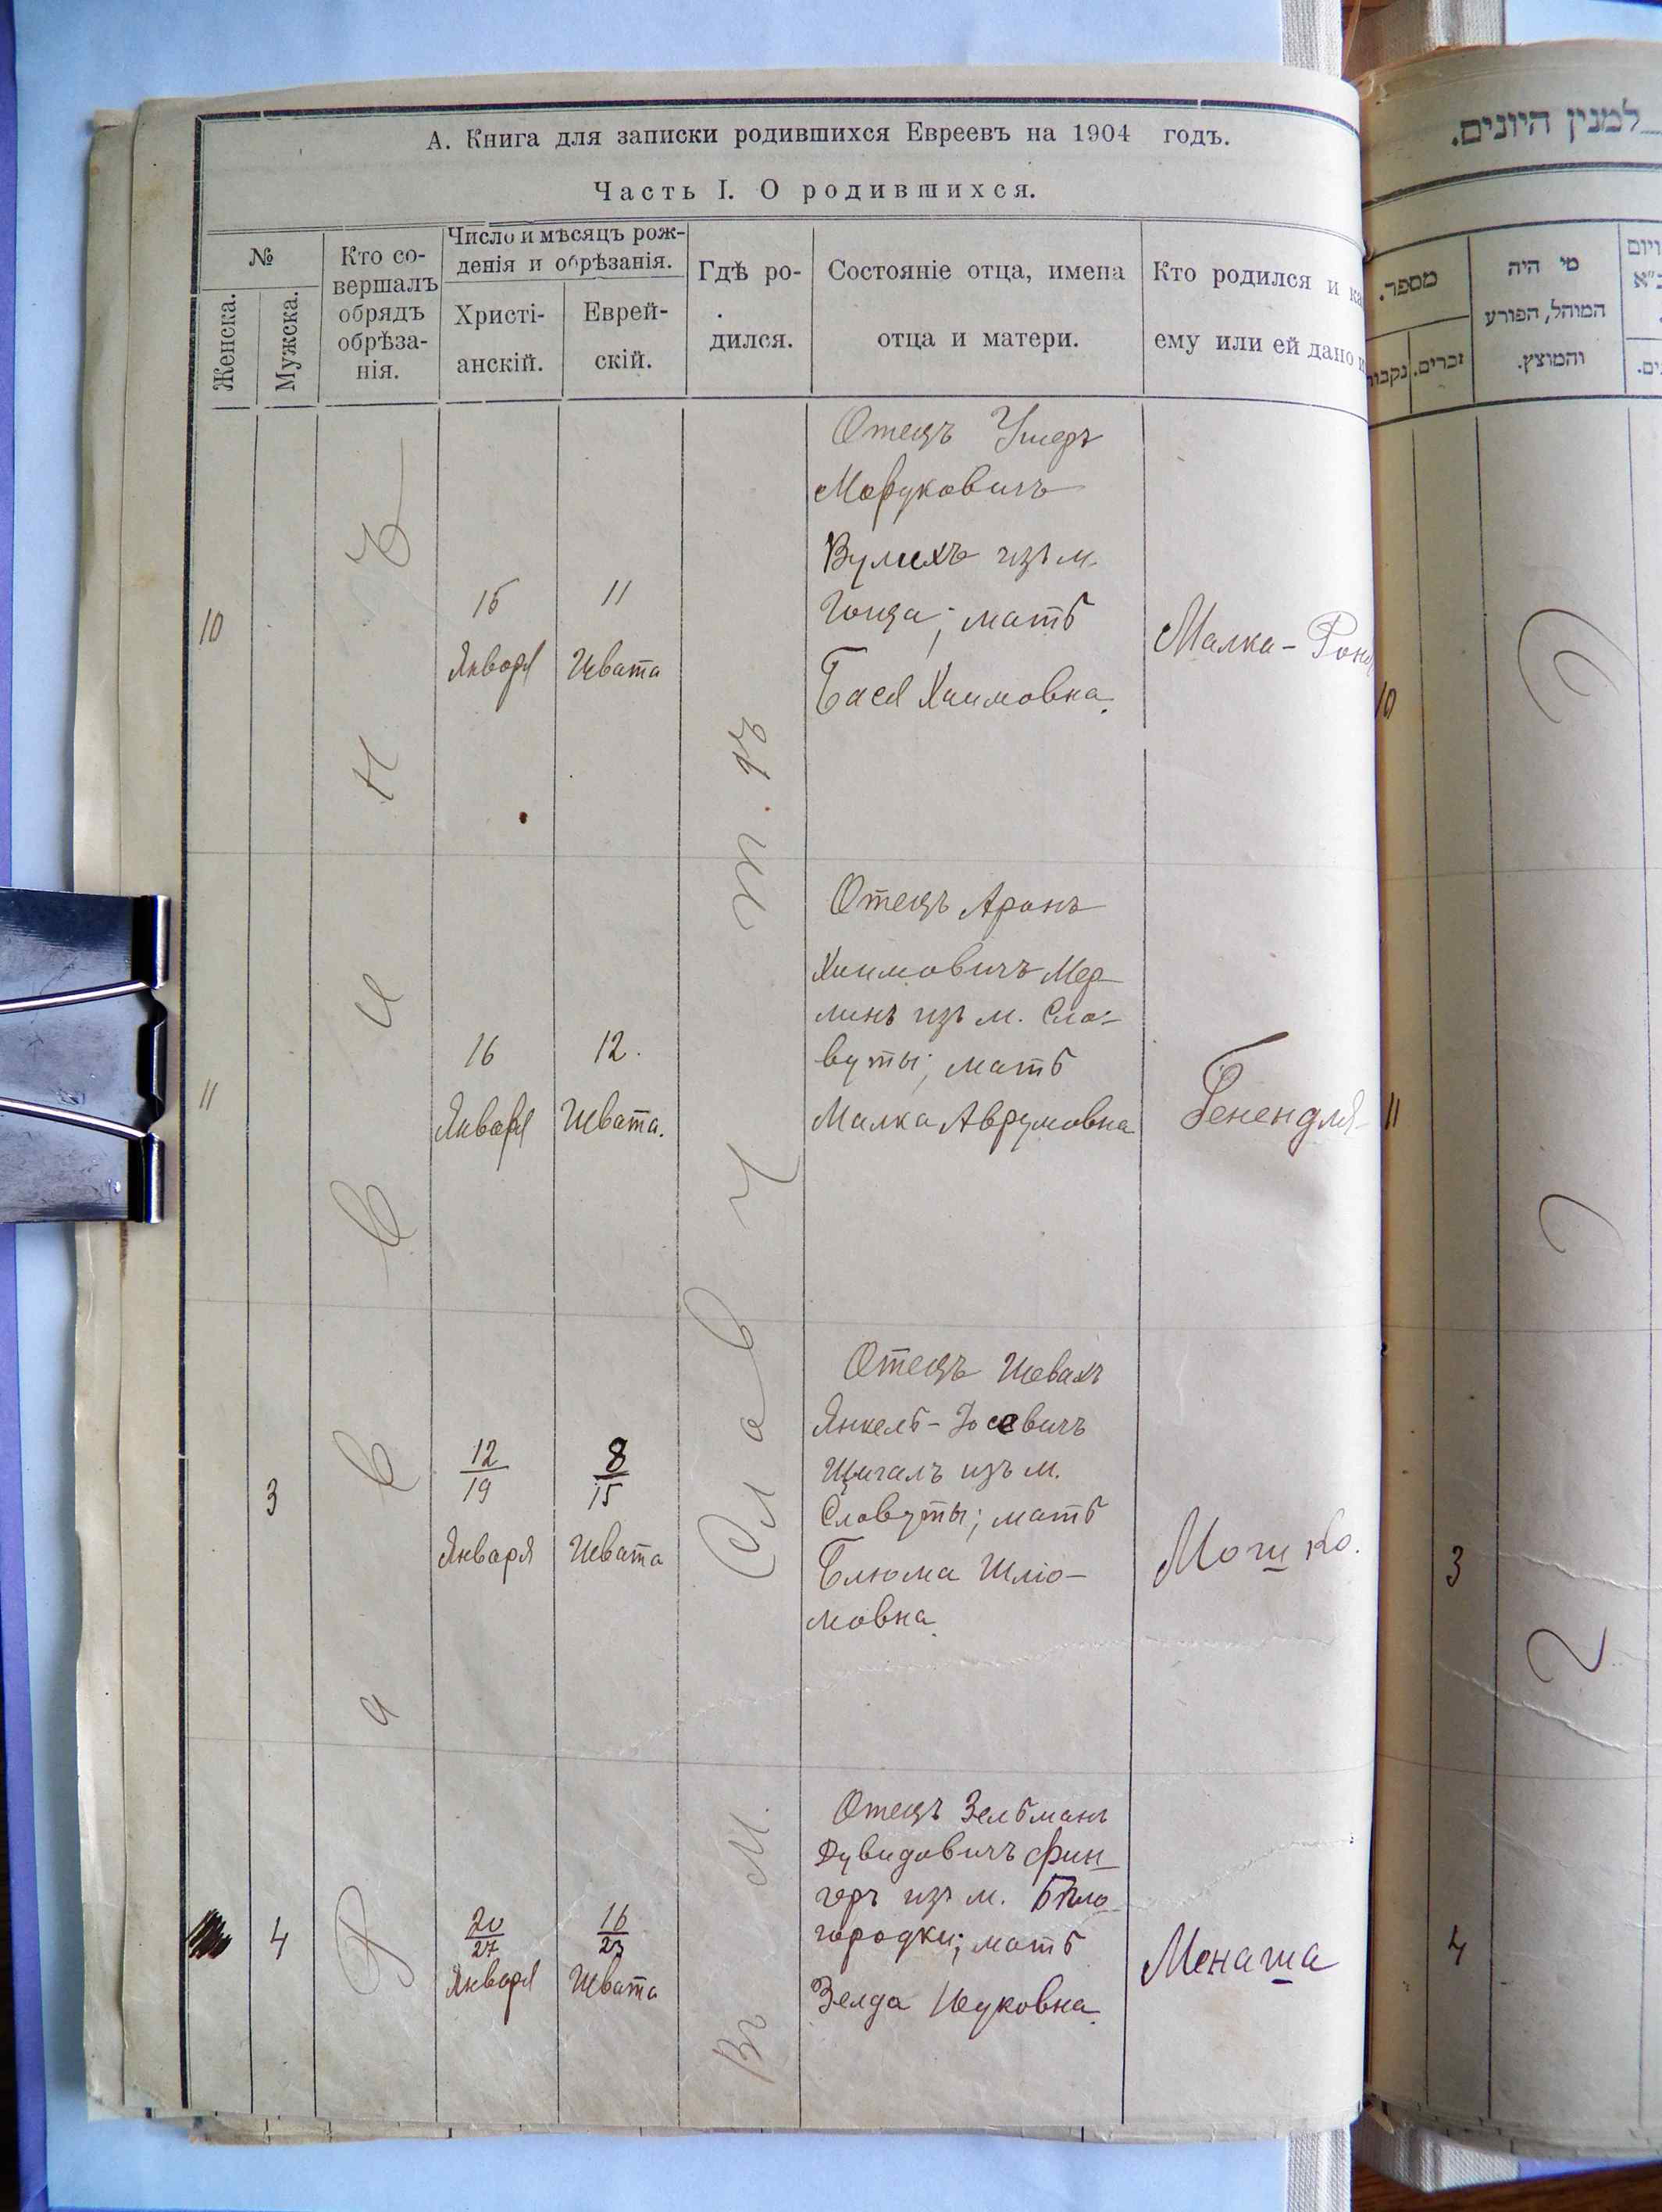 А. Книга для записки родившихся Евреевъ на 1904 годъ.
Часть I. О родившихся.
№
Женска.
Мужска.
Кто со-
вершалъ
обрядъ
обрѣза-
нія.
Число и мѣсяцъ рож-
денія и обрѣзанія.
Христі-
анскій.
Еврей-
скій.
Гдѣ ро-
дился.
Состояніе отца, имена
отца и матери.
Кто родился и ка
ему или ей дано
Раввинъ
Въ м. Славутѣ
10
15
Января
11
Шевата
Отецъ Ушеръ
Мордуковичъ
Вулихъ изъ м.
Гоща; мать
Бася Хаимовна.
Малка-
11
16
Января
12.
Шевата.
Отецъ Аронъ
Хаимовичъ Мер-
линъ изъ м. Сла-
вуты; мать
Малка Аврумовна
Генендля
3
12
19
Января
8
15
Шевата
Отецъ Шевахъ
Янкель-Іосевичъ
Щигалъ изъ м.
Славуты; мать
Блюма Шлio-
мовна.
Мошко.
4
20
27
Января
16
23
Шевата
Отецъ Зельманъ
Дувидовичъ Фин-
геръ изъ м. Бѣло-
городки; мать
Зелда Ицковна.
Менаша
למנין היונים.
מספר.
זכרים.
מי היה
המוהל, הפורע
והמוצץ.
10
11
3
4